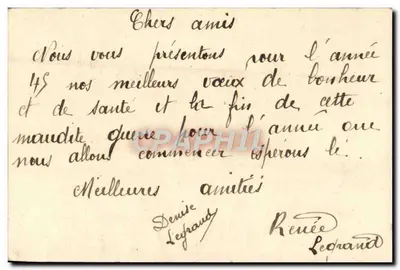 Chers amis
Nous vous présentons pour l'année
45 nos meilleurs vœux de bonheur
et de santé et la fin de cette
maudite guerre pour l'année que
nous allons commencer espérons le..
Meilleures amitiés
Denise
Legrand
Renée
Legrand